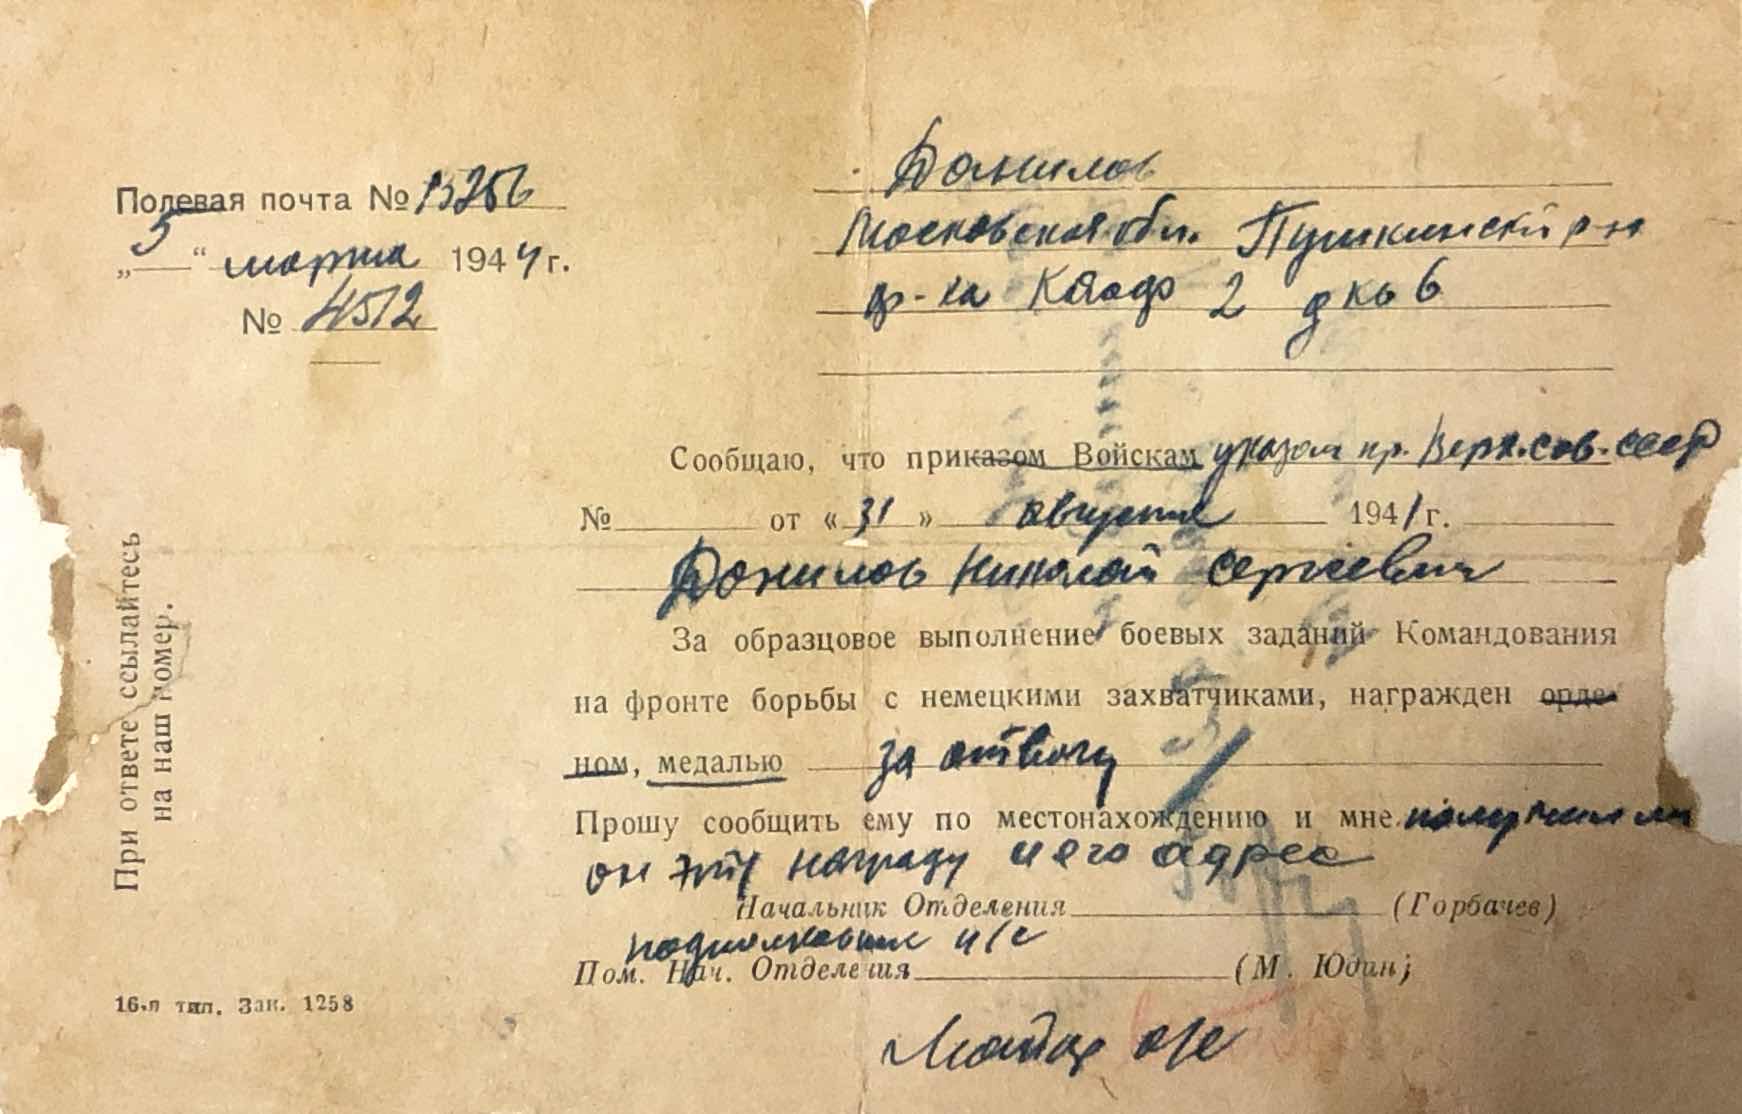 Полевая почта № 15256
„5“ марта 1944 г.
№ 4512
Данилов
Московская обл. Пушкинский р-н
ф-ка КОиФ 2 д кв 6
Сообщаю, что приказом Войскам указом пр. Верх. сов. СССР
№ от «31» августа 1941 г.
Данилов Николай Сергеевич
За образцовое выполнение боевых заданий Командования
на фронте борьбы с немецкими захватчиками, награжден орде-
ном, медалью за отвагу
Прошу сообщить ему по местонахождению и мне получил ли
он эту награду и его адрес
Начальник Отделения (Горбачев)
подполковник и/с
Пом. Нач. Отделения (М. Юдин)
майор
При ответе ссылайтесь
на наш номер.
16-я тип. Зак. 1258